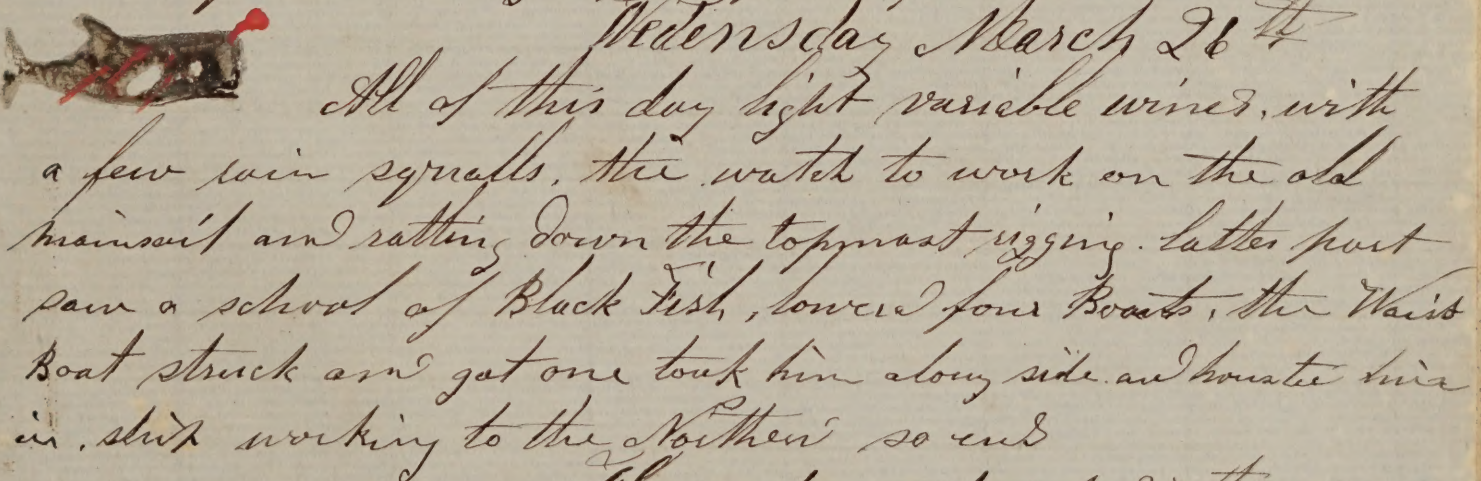 Wedensday March 26th
All of this day light variable wines, with
a few rain squalls, the watch to work on the old
mainsail and ratting down the topmast rigging. latter part
saw a school of Black Fish, lowered four Boats, the Waist
Boat struck and got one took him along side and hoisted him
in, ship working to the Northerd so ends